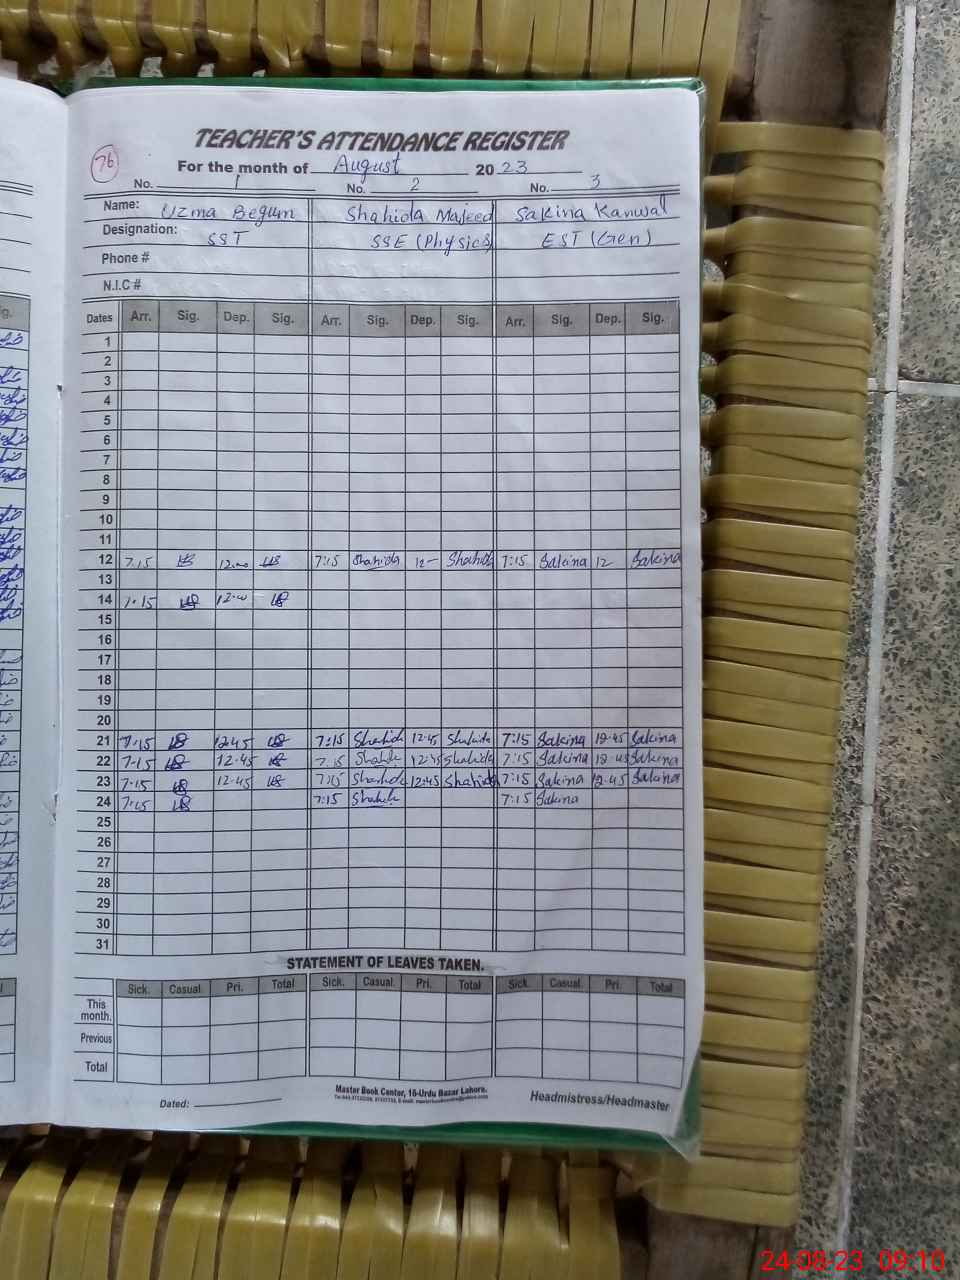 TEACHER'S ATTENDANCE REGISTER
76
For the month of August 2023
No. 1 No. 2 No. 3
Name: Uzma Begum Shahida Majeed Sakina Kanwal
Designation: SST SSE (Physics) EST (Gen)
Phone #
N.I.C #
Dates Arr. Sig. Dep. Sig. Arr. Sig. Dep. Sig. Arr. Sig. Dep. Sig.
1
2
3
4
5
6
7
8
9
10
11
12 7.15 12.00 7:15 Shahida 12- Shahida 7:15 Sakina 12 Sakina
13
14 7.15 12.00
15
16
17
18
19
20
21 7.15 12.45 7:15 Shahida 12.45 Shahida 7:15 Sakina 12.45 Sakina
22 7.15 12.45 7.15 Shahida 12.45 Shahida 7:15 Sakina 12.45 Sakina
23 7.15 12.45 7:15 Shahida 12:45 Shahida 7:15 Sakina 12.45 Sakina
24 7:15 7:15 Shahida 7:15 Sakina
25
26
27
28
29
30
31
STATEMENT OF LEAVES TAKEN.
Sick. Casual. Pri. Total Sick. Casual. Pri. Total Sick. Casual. Pri. Total
This month.
Previous
Total
Master Book Center, 16-Urdu Bazar Lahore.
Dated: Headmistress/Headmaster
24-08-23 09:10